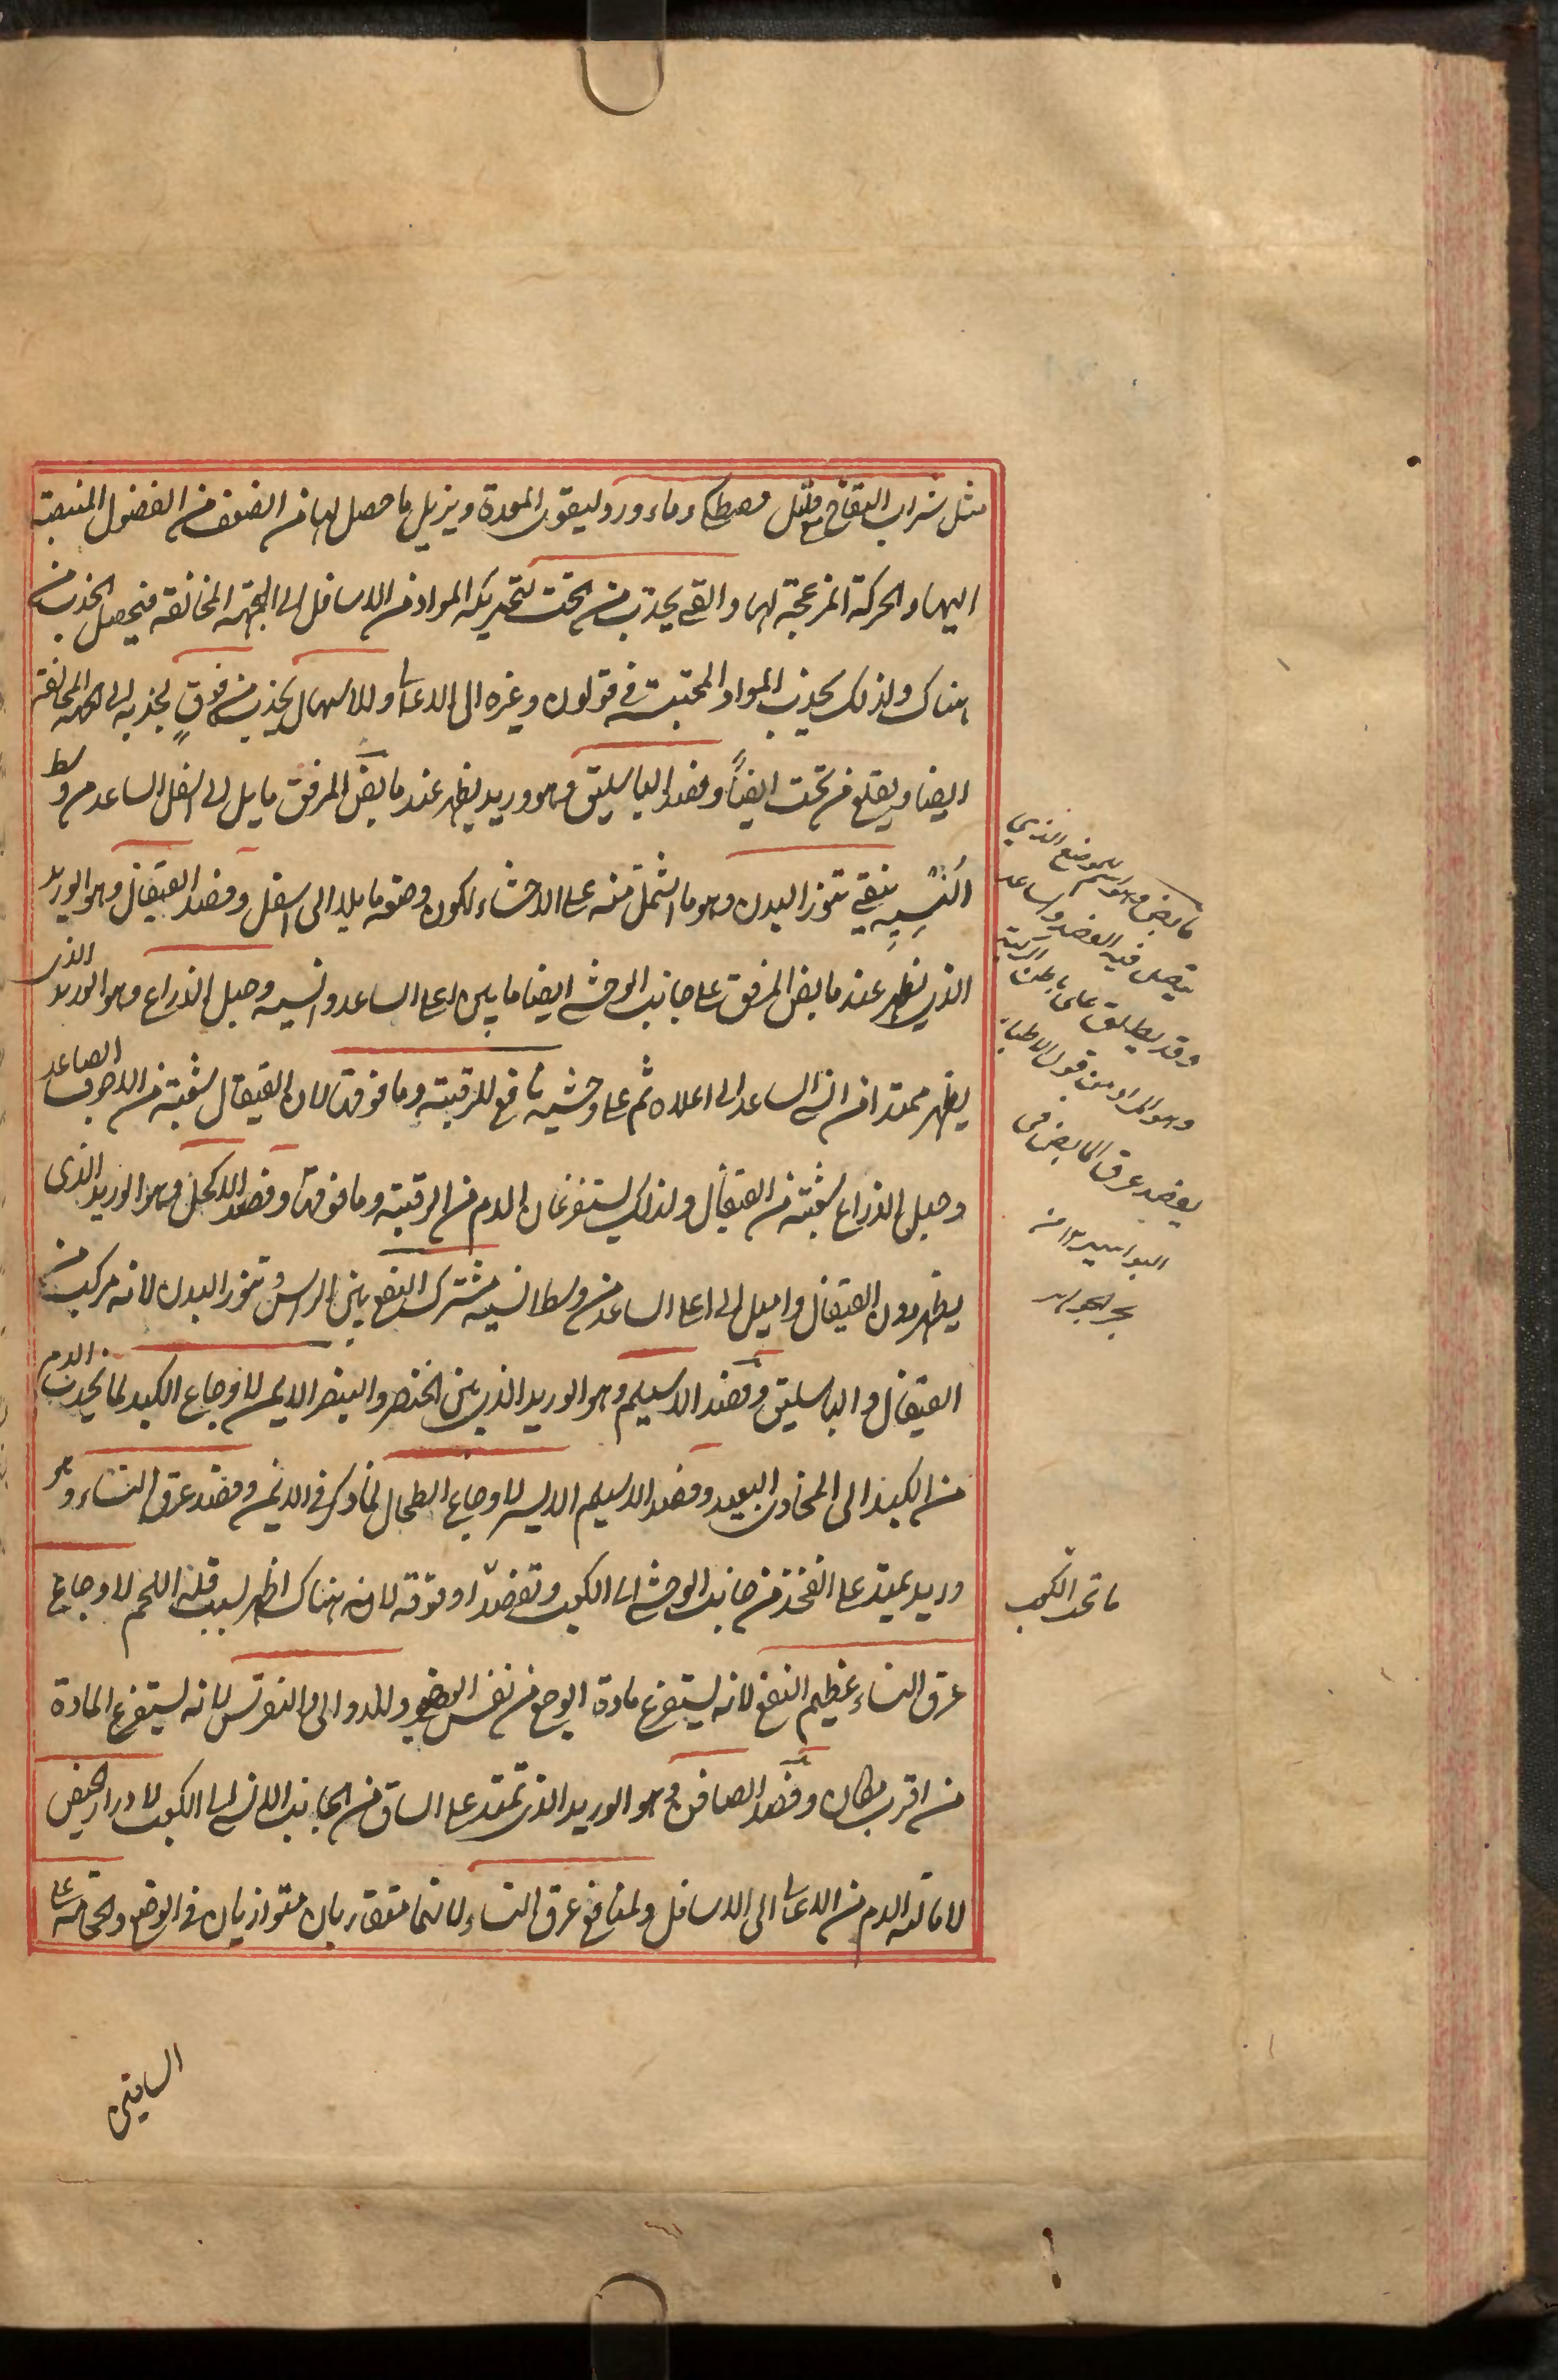 مثل شراب التفاح مع قليل مصطكي وماء ورد ليقوي المعدة ويزيل ما حصل لها من الضعف من الفضول المنصبة
اليها والحركة المزعجة لها والقي يجذب من تحت لتحريكه المواد من الاسافل الى الجهة المخالفة فيحصل الجذب من
هناك ولذلك يجذب المواد المحتبسة في قولون وغيره الى الاعالي والاسهال يجذب من فوقٍ لجذبه الى الجهة المخالفة
ايضا ويقلع من تحت ايضاً وفصد الباسليق وهو وريد يظهر عند مابض المرفق مايل الى اسفل الساعد من وسط
اُنْسِيِّهِ ينقي تنور البدن وهو ما اشتمل منه على الاحشاء لكون وضعه مايلا الى اسفل وفصد القيفال وهو الوريد
الذي يظهر عند مابض المرفق على جانب الوحشي ايضا ما يلي اعلى الساعد وانسيه وحبل الذراع وهو الوريد الذي
يظهر ممتدا من انسي الساعد الى اعلاه ثم على وحشيه نافع للرقبة وما فوقها لان القيفال شعبة من الاجوف الصاعد
وحبل الذراع شعبة من القيفال ولذلك يستفرغان الدم من الرقبة وما فوقها وفصد الاكحل وهو الوريد الذي
يظهر دون القيفال واميل الى اعلى الساعد من وسط انسيه مشترك النفع بين الراس وتنور البدن لانه مركب من
القيفال والباسليق وفصد الاسيلم وهو الوريد الذي بين الخنصر والبنصر الايمن لاوجاع الكبد لما يجذب الدم
من الكبد الى المحاذي البعيد وفصد الاسيلم الايسر لاوجاع الطحال لما ذكر في الايمن وفصد عرق النساء وهو
وريد يمتد على الفخذ من جانب الوحشي الى الكعب وتفصد او فوقه لانه هناك اظهر لسبب قلة اللحم لاوجاع
عرق النساء عظيم النفع لانه يستفرغ مادة الوجع من نفس العضو وللدوالي والنقرس لانه يستفرغ المادة
من اقرب مكان وفصد الصافن وهو الوريد الذي يمتد على الساق من الجانب الانسي الى الكعب لادرار الحيض
لامالته الدم من الاعالي الى الاسافل ولمنافع عرق النساء لانهما متقاربان متوازيان في الوضع والحجامة على
الساقين
مابض وهو اسم للموضع الذي
يتصل فيه العضد وساعد
وقد يطلق على باطن الركبة
وهو المراد من قول الاطباء
يفصد عرق المابض في
البواسير ١٢ من
بحر الجواهر
ما تحت الكعب